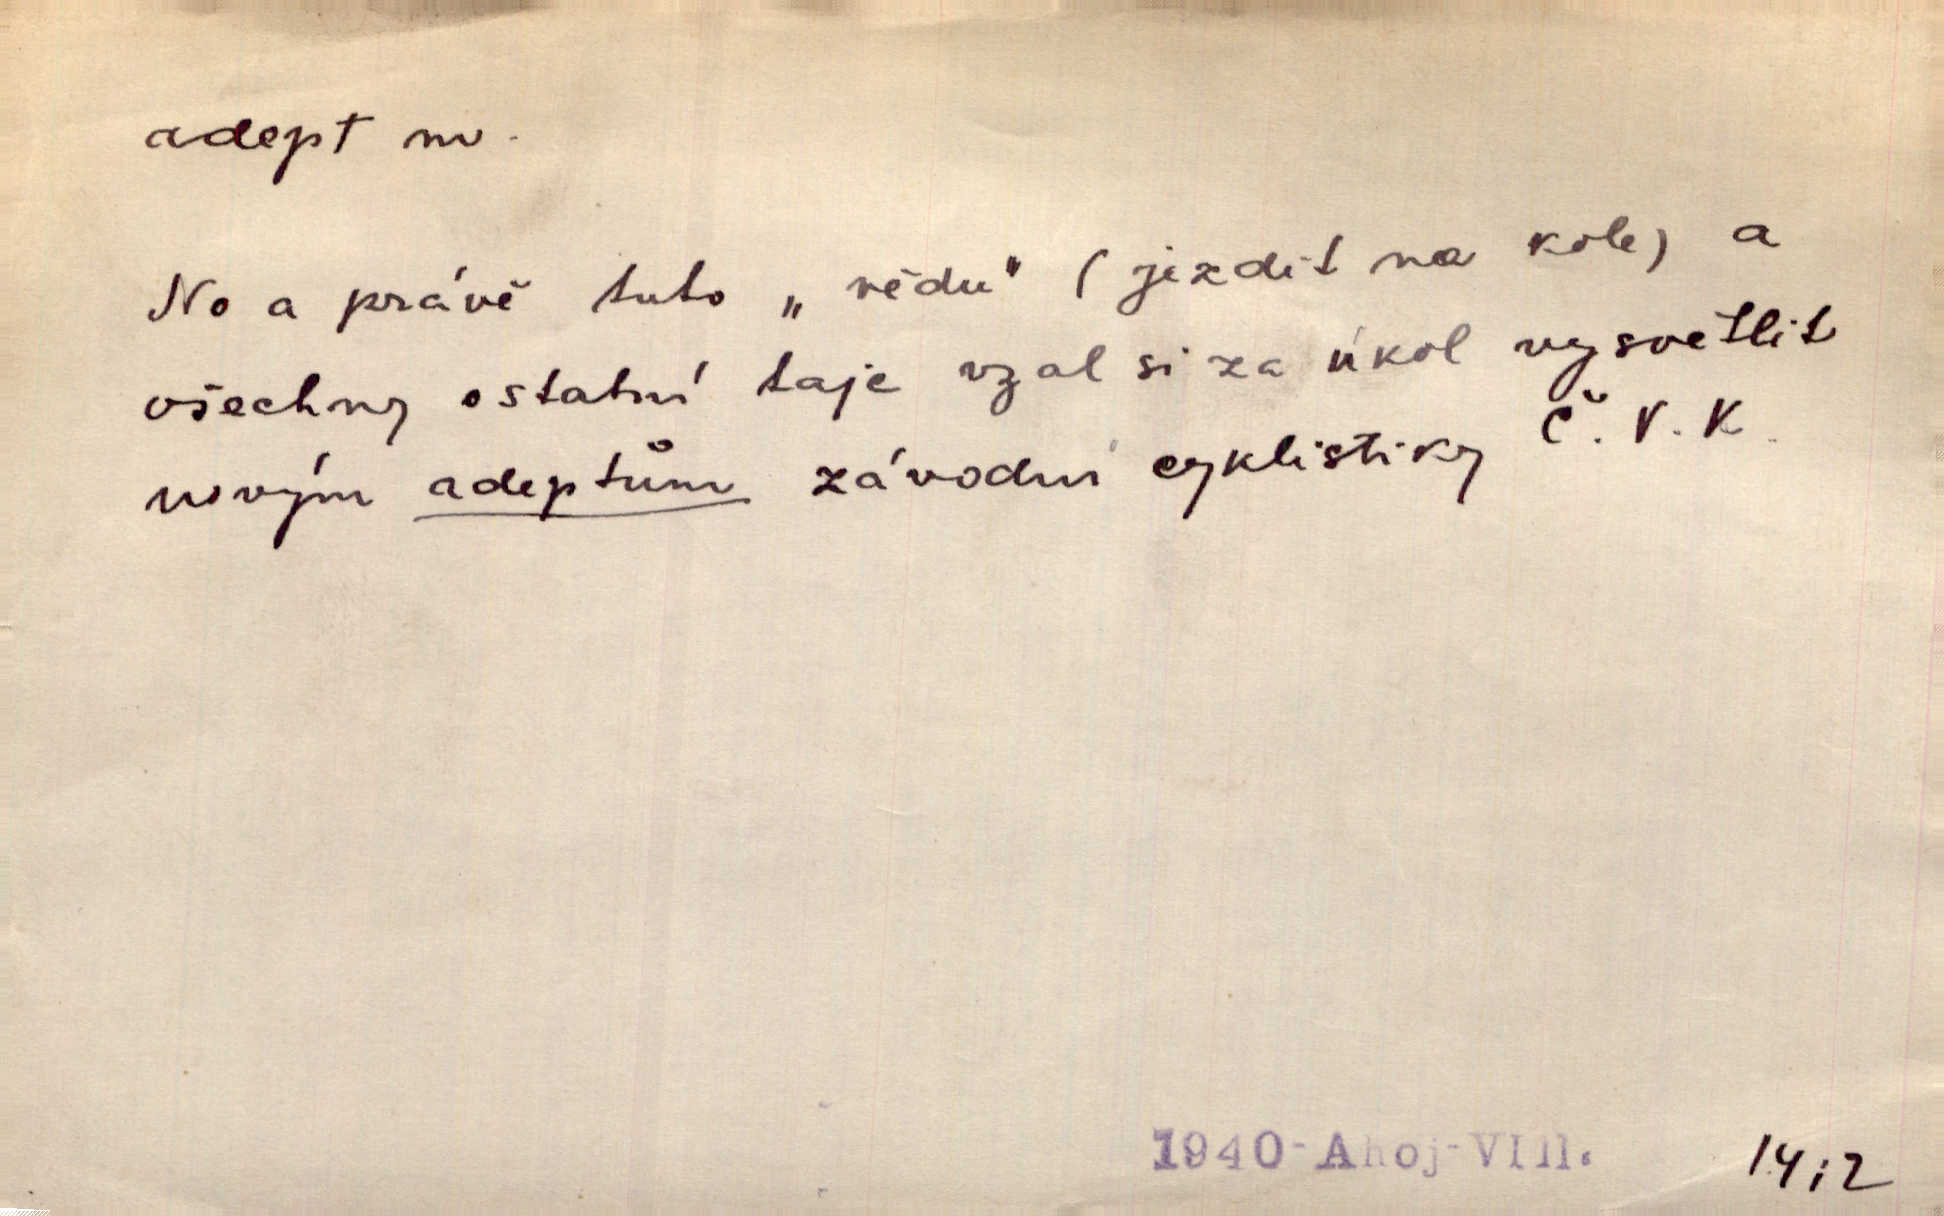 adept m.
No a právě tuto „vědu" (jezdit na kole) a
všechny ostatní taje vzal si za úkol vysvětlit
novým adeptům závodní cyklistiky Č.V.K.
1940-Ahoj-VIII. 14;2